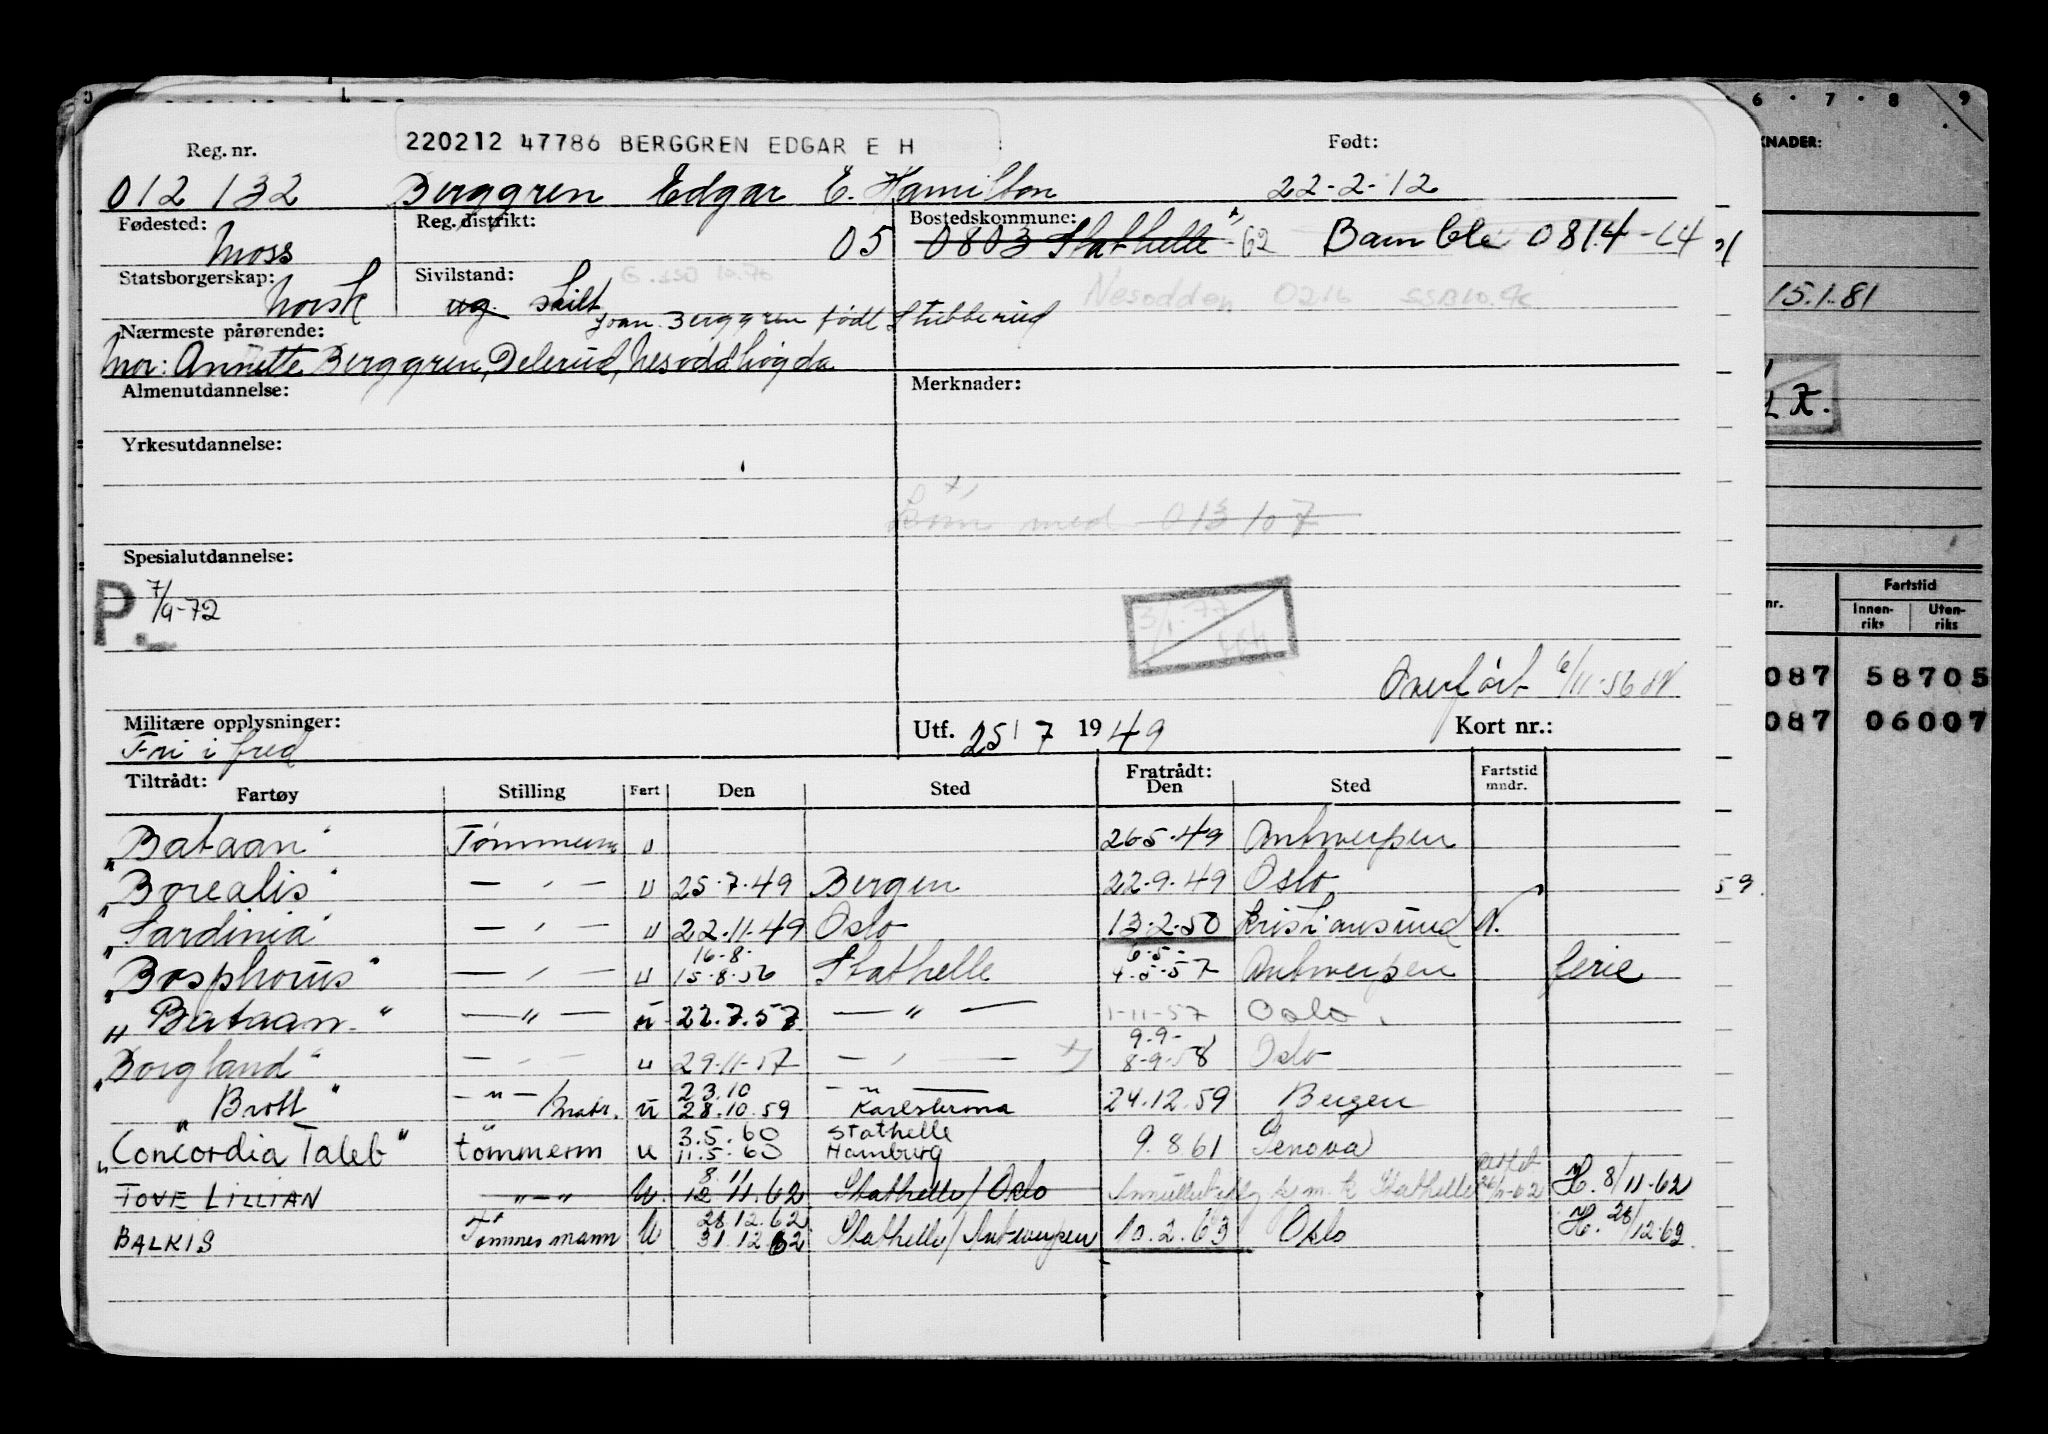 6 · 7 · 8 9
KNADER:
Reg. nr.
220212 47786 BERGGREN EDGAR E H
Født:
012 132 Berggren Edgar E. Hamilton 22-2-12
Fødested: Reg. distrikt: Bostedskommune:
Moss 05 0803 Stathelle -62 Bamble 0814-64
Statsborgerskap: Sivilstand:
Norsk ug. skilt
Nesodden 0216
15.1.81
Joan Berggren født Stubberud
Nærmeste pårørende:
Mor: Annette Berggren, Delerud, Nesoddhøgda
Almenutdannelse: Merknader:
Yrkesutdannelse:
med 013 107
Spesialutdannelse:
P. 7/9-72
3/1-77
Overført 6/11-56
Militære opplysninger: Utf. 25/7 1949 Kort nr.:
Fri i fred
Tiltrådt: Fratrådt:
Fartøy Stilling Fart Den Sted Den Sted Fartstid mndr.
"Bataan" Tømmerm u 26·5·49 Antwerpen
"Borealis" — " — u 25·7·49 Bergen 22·9·49 Oslo
"Sardinia" — " — u 22·11·49 Oslo 13·2·50 Kristiansund N.
16-8-
6-5-
"Bosphorus" — " — u 15-8-56 Stathelle 4-5-57 Antwerpen ferie
"Bataan" — " — u 22.7.57 — " — 1-11-57 Oslo
9-9-
"Borgland" — " — u 29-11-57 — " — 8-9-58 Oslo
23.10 — " —
"Brott" — " — Matr. u 28.10.59 Karlskrona 24.12.59 Bergen
3.5.60 Stathelle
"Concordia Taleb" tømmerm u 11.5.60 Hamburg 9.8.61 Genova
8.11
TOVE LILLIAN — " — U. 12.11.62 Stathelle/Oslo H. 8/11-62
28.12.62
BALKIS Tømmermann U 31.12.62 Stathelle/Antwerpen 10.2.63 Oslo H. 28/12.62
nr. Fartstid
Innen-riks Uten-riks
087 58705
087 06007